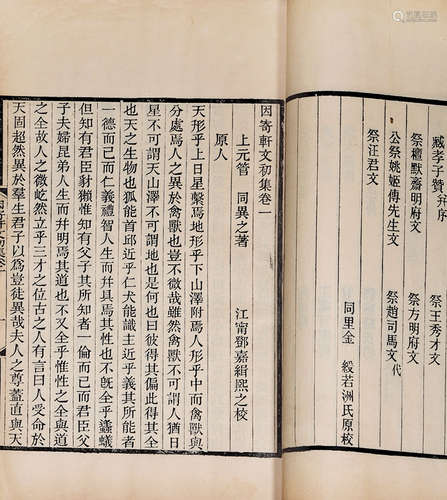 臧孝子贊 并序
祭檀默齋明府文 祭王秀才文
公祭姚姬傳先生文 祭方明府文
祭汪君文 祭趙司馬文 代
同里金 綬若洲氏原校
因寄軒文初集卷一
上元管 同異之著 江甯鄧嘉緝熙之校
原人
天形乎上日星繫焉地形乎下山澤附焉人形乎中而禽獸與
分處焉人之異於禽獸也豈不微哉雖然禽獸不可謂人猶日
星不可謂天山澤不可謂地也是何也曰彼得其偏此得其
也天之生物也狐能首邱近乎仁犬能識主近乎義其所能者
一德而已而仁義禮智人生而并具焉其性也不旣全乎蟻
但知有君臣豺獺惟知有父子其所知者一倫而已而君臣父
子夫婦昆弟人生而并明焉其道也不又全乎惟性之全與道
之全故人之微屹然立乎三才之位古之人有言曰人受命於
天固超然異於羣生君子以為豈徒異哉夫人之尊蓋直與天